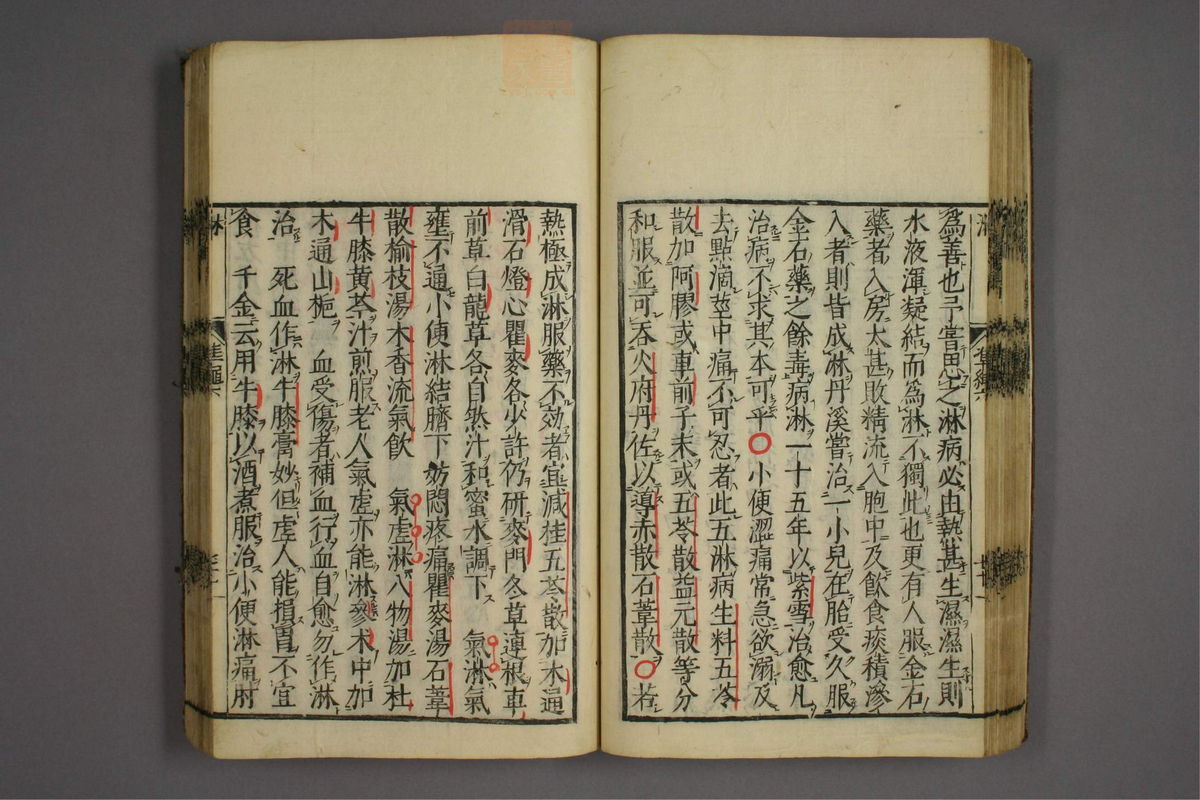 爲善也予嘗思之淋病必由熱甚生濕濕生則
水液渾凝結而爲淋不獨此也更有人服金石
藥者入房太甚敗精流入胞中及飲食痰積滲
入者則皆成淋丹溪嘗治一小兒在胎受久服
金石藥之餘毒病淋一十五年以紫雪治愈凡
治病不求其本可乎○小便澀痛常急欲溺及
去點滴莖中痛不可忍者此五淋病生料五苓
散加阿膠或車前子末或五苓散益元散等分
和服並可吞火府丹佐以導赤散石葦散○若
熱極成淋服藥不効者宜減桂五苓散加木通
滑石燈心瞿麥各少許仍研麥門冬草連根車
前草白龍草各自然汁和蜜水調下 氣淋氣
壅不通小便淋結臍下妨悶疼痛瞿麥湯石葦
散榆枝湯木香流氣飲 氣虛淋八物湯加杜
牛膝黃芩汁煎服老人氣虛亦能淋參木中加
木通山梔 血受傷者補血行血自愈勿作淋
治 死血作淋牛膝膏妙但虛人能損胃不宜
食 千金云用牛膝以酒煮服治小便淋痛肘
淋